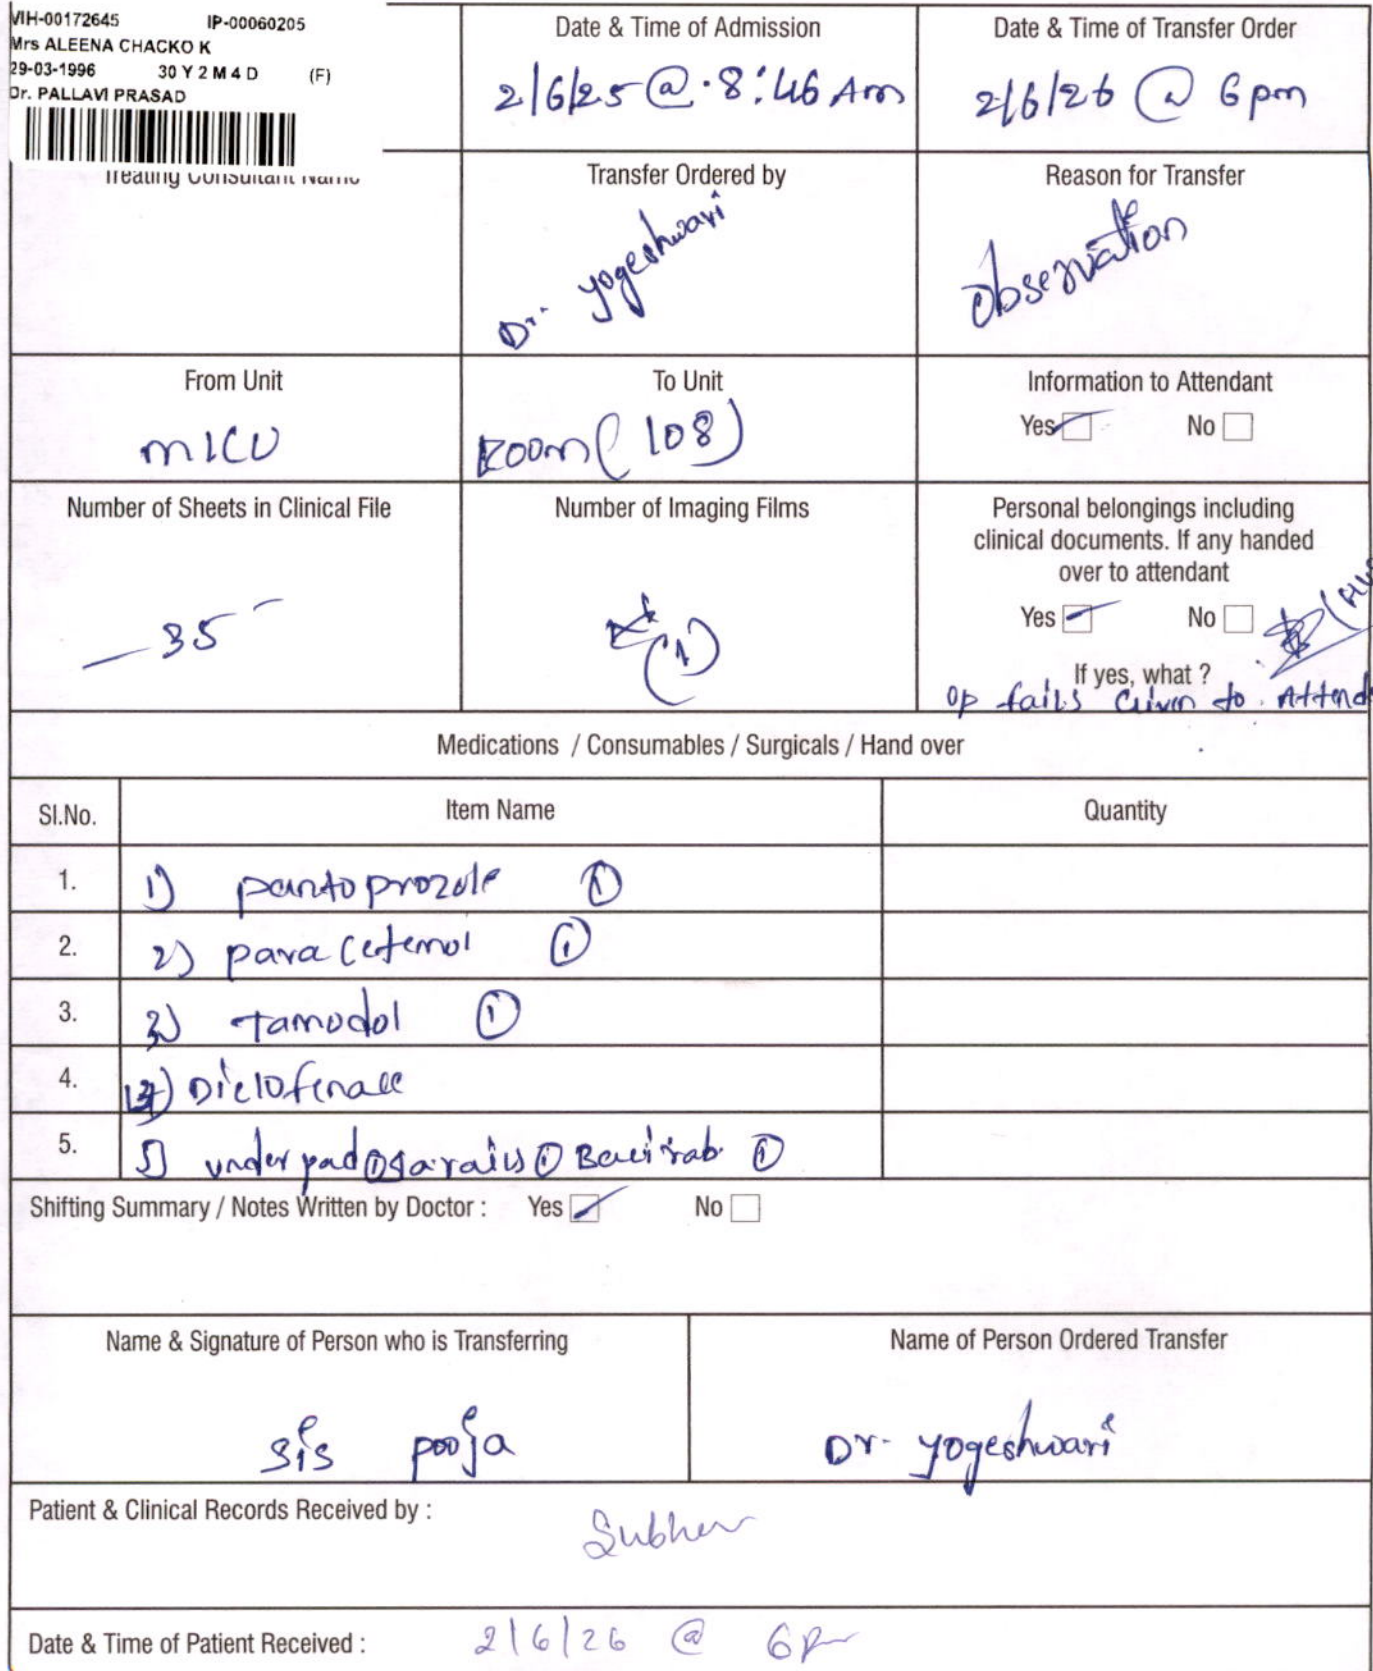 VIH-00172645 IP-00060205
Mrs ALEENA CHACKO K
29-03-1996 30 Y 2 M 4 D (F)
Dr. PALLAVI PRASAD
Treating Consultant Name
Date & Time of Admission
2/6/25 @ 8:46 Am
Date & Time of Transfer Order
2/6/26 @ 6 pm
Transfer Ordered by
Dr. yogeshwari
Reason for Transfer
Observation
From Unit
MICU
To Unit
Room (108)
Information to Attendant
Yes No
Number of Sheets in Clinical File
35
Number of Imaging Films
(1)
Personal belongings including
clinical documents. If any handed
over to attendant
Yes No
If yes, what ?
op fails Given to Attend
Medications / Consumables / Surgicals / Hand over
Sl.No. Item Name Quantity
1. 1) pantoprozole (1)
2. 2) paracetemol (1)
3. 3) Tamodol (1)
4. 4) Diclofenac
5. 5) underpad (1) (1) (1)
Shifting Summary / Notes Written by Doctor : Yes No
Name & Signature of Person who is Transferring
sis pooja
Name of Person Ordered Transfer
Dr. yogeshwari
Patient & Clinical Records Received by :
Date & Time of Patient Received : 2/6/26 @ 6 pm